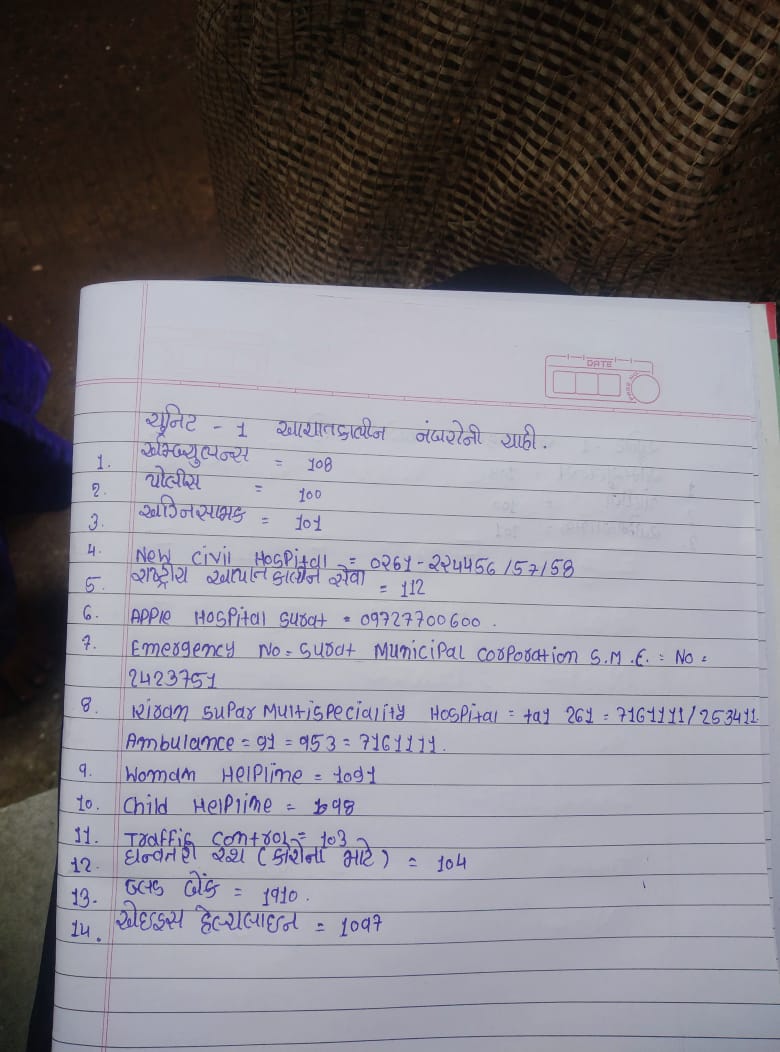 DATE
યુનિટ - 1 આપાતકાલીન નંબરોની યાદી.
1. એમ્બ્યુલન્સ = 108
2. પોલીસ = 100
3. અગ્નિસામક = 101
4. New Civil Hospital = 0261-224456/57/58
5. રાષ્ટ્રીય આપાતકાલીન સેવા = 112
6. Apple Hospital Surat = 09727700600.
7. Emergency No = Surat Municipal Corporation S.M.C. = No =
2423751
8. Kiran Supar Multispeciality Hospital = +91 261 = 7161111/253411
Ambulance = 91 = 953 = 7161111.
9. Womam Helpline = 1091
10. Child Helpline = 1098
11. Traffic Control = 103
12. ધન્વંતરી રથ (કોરોના માટે) = 104
13. બ્લડ બેંક = 1910.
14. એઇડ્સ હેલ્પલાઇન = 1097